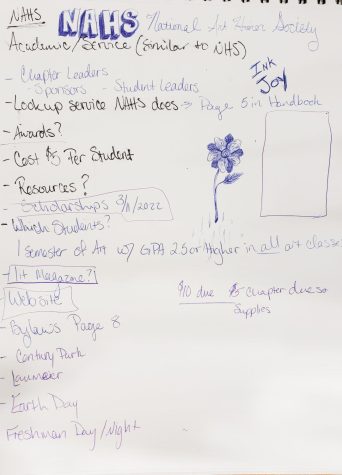 NAHS NAHS National Art Honor Society
Academic/Service (Similar to NHS)
- Chapter Leaders
- Sponsors - Student Leaders
Ink
Joy
- Look up service NAHS does → Page 5 in Handbook
- Awards?
- Cost $ Per Student
- Resources?
- Scholarships 3/1/2022
- Which Students?
1 semester of Art w/ GPA 2.5 or Higher in all art classes
- Lit Magazine?
Website
$10 due Chapter dues
Supplies
- Bylaws Page 8
- Century Park
- Earth Day
Freshman Day/Night